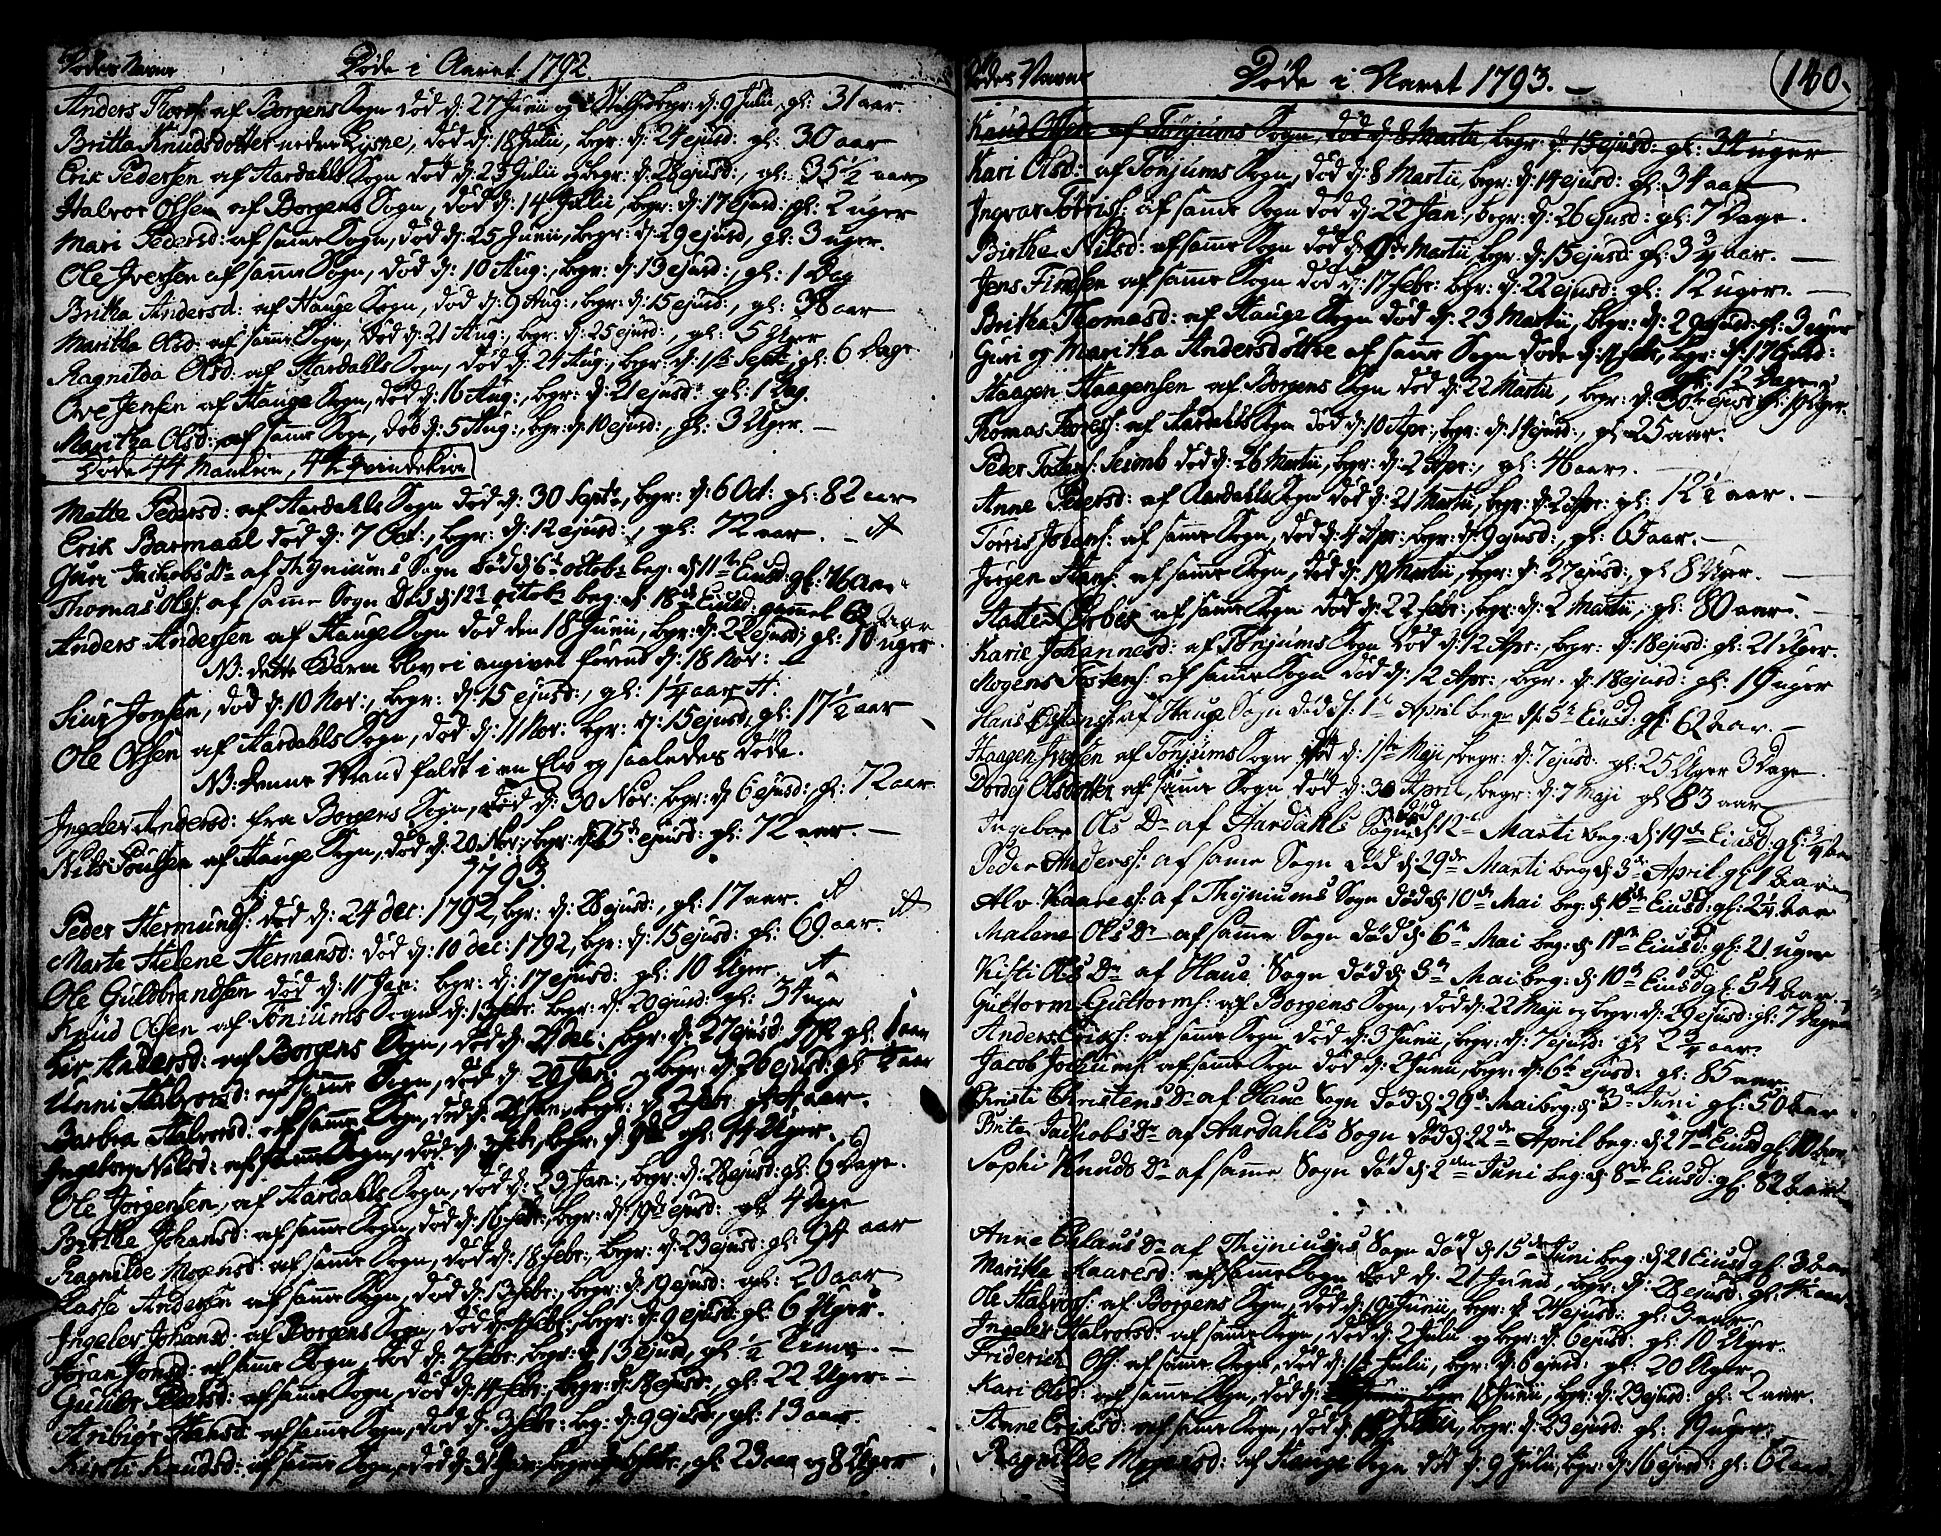 Dødes Navne Døde i Aaret 1792.
Anders Thores: af Borgens Sogn død d: 27 Junii og begr: d: 9 Julii, gl: 31 aar.
Britta Knudsdotter nedre Lysne, død d: 18 Julii, begr: d: 24 ejusd: gl: 30 aar
Erik Pedersen af Aardahls Sogn død d: 23 Julii og begr: d: 28 ejusd:, gl: 35 1/2 aar
Halvor Olsen af Borgens Sogn, død d: 14 Julii, begr: d: 17 ejusd: gl: 2 uger
Mari Pedersd: af samme Sogn, død d: 25 Junii, begr: d: 29 ejusd, gl: 3 uger.
Ole Iversen af samme Sogn, død d: 10 Aug:, begr: d: 13 ejusd:, gl: 1 Dag
Britha Andersd: af Hauge Sogn, død d: 9 Aug:, begr: d: 15 ejusd:, gl: 38 aar
Maritha Olsd: af samme Sogn, død d: 21 Aug:, begr: d: 25 ejusd:, gl: 5 Uger
Ragnilda Olsd: af Aardahls Sogn, død d: 24 Aug:, begr: d: 1ste Sept:, gl: 6 Dage.
Ove Jensen af Hauge Sogn, død d: 16 Aug:, begr: d: 21 ejusd: gl: 1 Dag.
Maritha Olsd: af samme Sogn, død d: 5 Aug:, begr: d: 10 ejusd:, gl: 3 Uger. —
Døde 44 Mankiøn, 42 Qvindekiøn
Mette Pedersd: af Aardahls Sogn død d: 30 Septr:, begr: d: 6 Oct: gl: 82 aar
Erik Barmaal død d: 7 Oct:, begr: d: 12 ejusd:, gl: 72 aar. —
Guri Jachobs Dr af Thyniums Sogn død d 6te octobr beg: d 11te Eiusd gl: 76 aar
Thomas Ols: af samme Sogn død d 12te octobr beg: d 18de Eiusd: gammel 62 aar
Anders Andersen af Hauge Sogn død den 18 Junii, begr: d: 22 ejusd: gl: 10 uger.
NB: dette Barn blev ei angivet førend d: 18 Nov:
Siur Jonsen, død d: 10 Nov:, begr: d: 15 ejusd:, gl: 1 1/4 aar
Ole Olsen af Aardahls Sogn, død d: 11 Nov: begr: d: 15 ejusd, gl: 17 1/2 aar
NB: denne Mand faldt i en Elv og saaledes døde.
Ingeler Andersd: fra Borgens Sogn, død d: 30 Nov:, begr: d: 6 ejusd:, gl: 72 aar.
Nils Poulsen af Hauge Sogn, død d: 20 Nov: begr: d: 25de ejusd: gl: 72 aar. —
1793
Peder Hermunds: død d: 24 dec: 1792, begr: d: 28 ejusd:, gl: 17 aar.
Marte Helene Hermansd: død d: 10 dec: 1792, begr: d: 15 ejusd: gl: 69 aar.
Ole Guldbrandsen død d: 11 Jan: begr: d: 17 ejusd: gl: 10 Uger.
Knud Olsen af Tønjums Sogn d: 13 febr: begr: d: 20 ejusd: gl: 34 uger
Siv Andersd: af Borgens Sogn, død d: 21 Dec:, begr: d: 27 ejusd, gl: 1 aar
Unni Halvorsd: af samme Sogn, død d: 20 Jan: og begr: d: 26 ejusd: gl:
Barbra Halvorsd: af samme Sogn, død d: 28 Jan: begr: d: 2 febr: gl: aar.
Ingeborg Nilsd: af samme Sogn, død d: 3 febr:, begr: d: 9de gl: 14 Uger.
Ole Jørgensen, af Aardahls Sogn, død d: 23 Jan:, begr: d: 28 ejusd: gl: 6 Dage.
Birthe Johansd: af samme Sogn, død d: 16 febr:, begr: d: 19 ejusd: gl: 4 Dage
Ragnilde Mogensd: af samme Sogn, død d: 18 febr:, begr: d: 23 ejusd: gl: 94 aar
Lasse Andersen af samme Sogn, død d: 13 febr:, begr: d: 19 ejusd: gl: 20 aar
Ingeler Johansd: af Borgens Sogn, død d: 4 febr:, begr: d: 9 ejusd: gl: 6 Uger.
Jøran Jonsd: af samme Sogn, død d: 7 febr:, begr: d: 13 ejusd, gl: 1/2 Time. —
Gunild Pedersd: af samme Sogn, død d: 14 febr:, begr: d: ejusd:, gl: 22 Uger. —
Anbiør Hansd: af samme Sogn, død d: 3 febr: beg: d: 9 ejusd, gl: 13 aar.
Kirsti Knudsd: af samme Sogn, død d: 31 Jan: begr: d: 6 febr:, gl: 23 aar og 8 Uger
Dødes Navne Døde i Aaret 1793. — 180.
Knud Olsen af Tønjums Sogn, død d: 8 Martii, begr: d: 15 ejusd: gl: 34 uger
Kari Olsd: af Tønjums Sogn, død d: 8 Martii, begr: d: 14 ejusd: gl: 34 aar
Ingvar Torris: af samme Sogn død d: 22 Jan:, begr: d: 26 ejusd: gl: 7 Dage.
Birthe Nilsd: af samme Sogn død d: 9de Martii, begr: d: 15 ejusd: gl: 3 3/4 aar. —
Jens Finsen af samme Sogn død d: 17 febr: begr: d: 22 ejusd: gl: 12 uger. —
Britha Thomasd: af Hauge Sogn død d: 23 Martii, begr: d: 29 ejusd: gl: 3 uger
Guri og Maritha Andersdøttre af samme Sogn døde d: 11 febr:, begr: d: 17 ejusd:
gl: 12 Dage
Haagen Haagensen af Borgens Sogn død d: 22 Martii, begr: d: 30te ejusd gl: 19 Uger.
Thomas Thores: af Aardahls Sogn død d: 10 Apr:, begr: d: 14 ejusd:, gl: 25 aar.
Peder Tostens: Seimb død d: 26 Martii, begr: d: 2 Apr:, gl: 46 aar.
Anne Pedersd: af Aardahls Sogn død d: 21 Martii, begr: d: 2 Apr: gl: 12 1/2 aar. —
Torris Johans: af samme Sogn, død d: 4 Apr:, begr: d: 9 ejusd:, gl: 65 aar. —
Jørgen Hans: af samme Sogn, død d: 19 Martii, begr: d: 27 ejusd:, gl 8 Uger. —
af samme Sogn død d: 22 febr:, begr: d: 2 Martii, gl: 80 aar. —
Karie Johannesd: af Tønjums Sogn død d: 12 Apr:, begr: d: 18 ejusd: gl: 21 Uger.
Mogens Tostens: af samme Sogn død d: 12 Apr:, begr. d: 18 ejusd: gl: 19 uger
Hans af Hauge Sogn død d: 1te April begr d: 5te Eiusd: gl: 62 aar. —
Haagen Iversen af Tønjums Sogn død d: 1ste Maji, begr: d: 7 ejusd: gl: 25 Uger 3 Dage.
Dordej Olsdotter af samme Sogn død d: 30 April, begr: d: 7 Maji gl 83 aar
Ingebor Ols Dr af Aardahls Sogn død d 12te Marti beg: d: 19de Eiusd: gl: 3/4 aar
Peder Anders: af same Sogn død d: 29de Marti beg d: 3de April gl: 1 aar
Alv Kaares: af Thyniums Sogn død d: 10de Mai beg: d: 16de Eiusd: gl: 2 1/4 aar
Malene Ols Dr af samme Sogn død d: 6te Mai beg: d 11te Eiusd: gl: 21 uger
Kisti Ols Dr af Haue Sogn død d: 3de Mai beg: d 10de Eiusd gl: 54 aar. —
Guttorm Guttorms: af Borgens Sogn, død d: 22 Maji og begr: d: 29 ejusd: gl: 7 Dage
Anders Erics: af samme Sogn død d: 3 Junii, begr: d: 7 ejusd: gl 2 3/4 aar.
Jacob Jochums: af samme Sogn død d: 2 Junii, begr: d: 6te ejusd: gl: 85 aar.
Christi Christens Dr af Haue Sogn død d: 29de Mai beg: d: 3de Juni gl: 50 aar
Brite Jachobs Dr af Aardahls Sogn død d 22de April beg: d: 27de Eiusd gl: 10 aar
Sophi Knuds Dr af samme Sogn død d: 2den Juni beg: d: 8de Eiusd: gl: 82 aar
Anne Dr af Thyniums Sogn død d 15de Juni beg: d: 21 Eiusd gl: 3 aar
Maritha Kaaresd: af samme Sogn død d: 21 Junii, begr: d: 28 ejusd: gl: aar
Ole Halvors: af Borgens Sogn, død d: 19 Junii, begr: d: 24 ejusd: gl: 3 aar.
Ingeler Halvorsd: af samme Sogn, død d: 2 Julii og begr: d: 6 ejusd: gl: 10 Uger.
Friderich Ols: af samme Sogn, død d: 1ste Julii, begr: d: 6 ejusd: gl: 20 Uger
Kari Olsd: af samme Sogn, død d: 18 Junii, begr: d: 23 ejusd: gl: 2 aar.
Anne Ericksd: af samme Sogn, død d: Junii, begr: d: 23 ejusd: gl: 19 uger.
Ragnilde Mogensd: af Hauge Sogn død d: 9 Julii, begr: d: 16 ejusd: gl: 62 aar